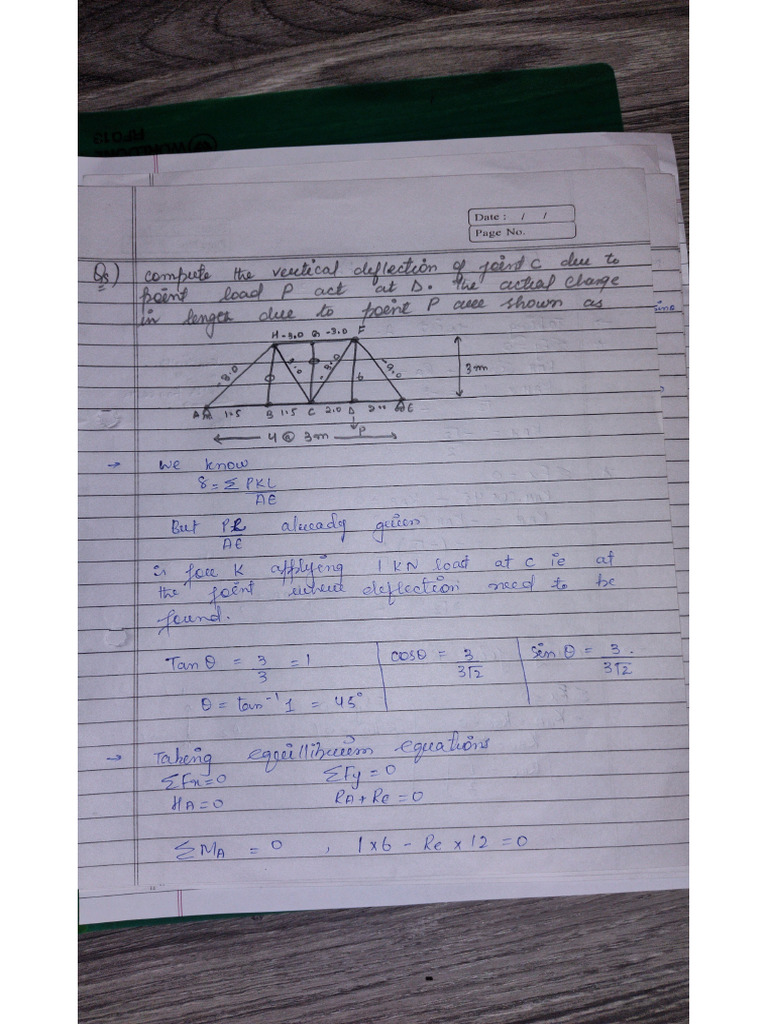 Date : / /
Page No.
Q5) compute the vertical deflection of joint C due to
point load P act at D. The actual change
in length due to point P are shown as
H -3.0 G -3.0 F
3m
A 1.5 B 1.5 C 2.0 D E
4 @ 3m P
→ we know
δ = Σ PKL
AE
But PL already given
AE
is for K applying 1 KN load at C ie at
the joint where deflection need to be
found.
Tan θ = 3 = 1 cosθ = 3 sin θ = 3
3 3√2 3√2
θ = tan⁻¹ 1 = 45°
→ Taking equillibrium equations
ΣFx=0 ΣFy=0
HA=0 RA+RE=0
ΣMA = 0 , 1x6 - Re x 12 = 0